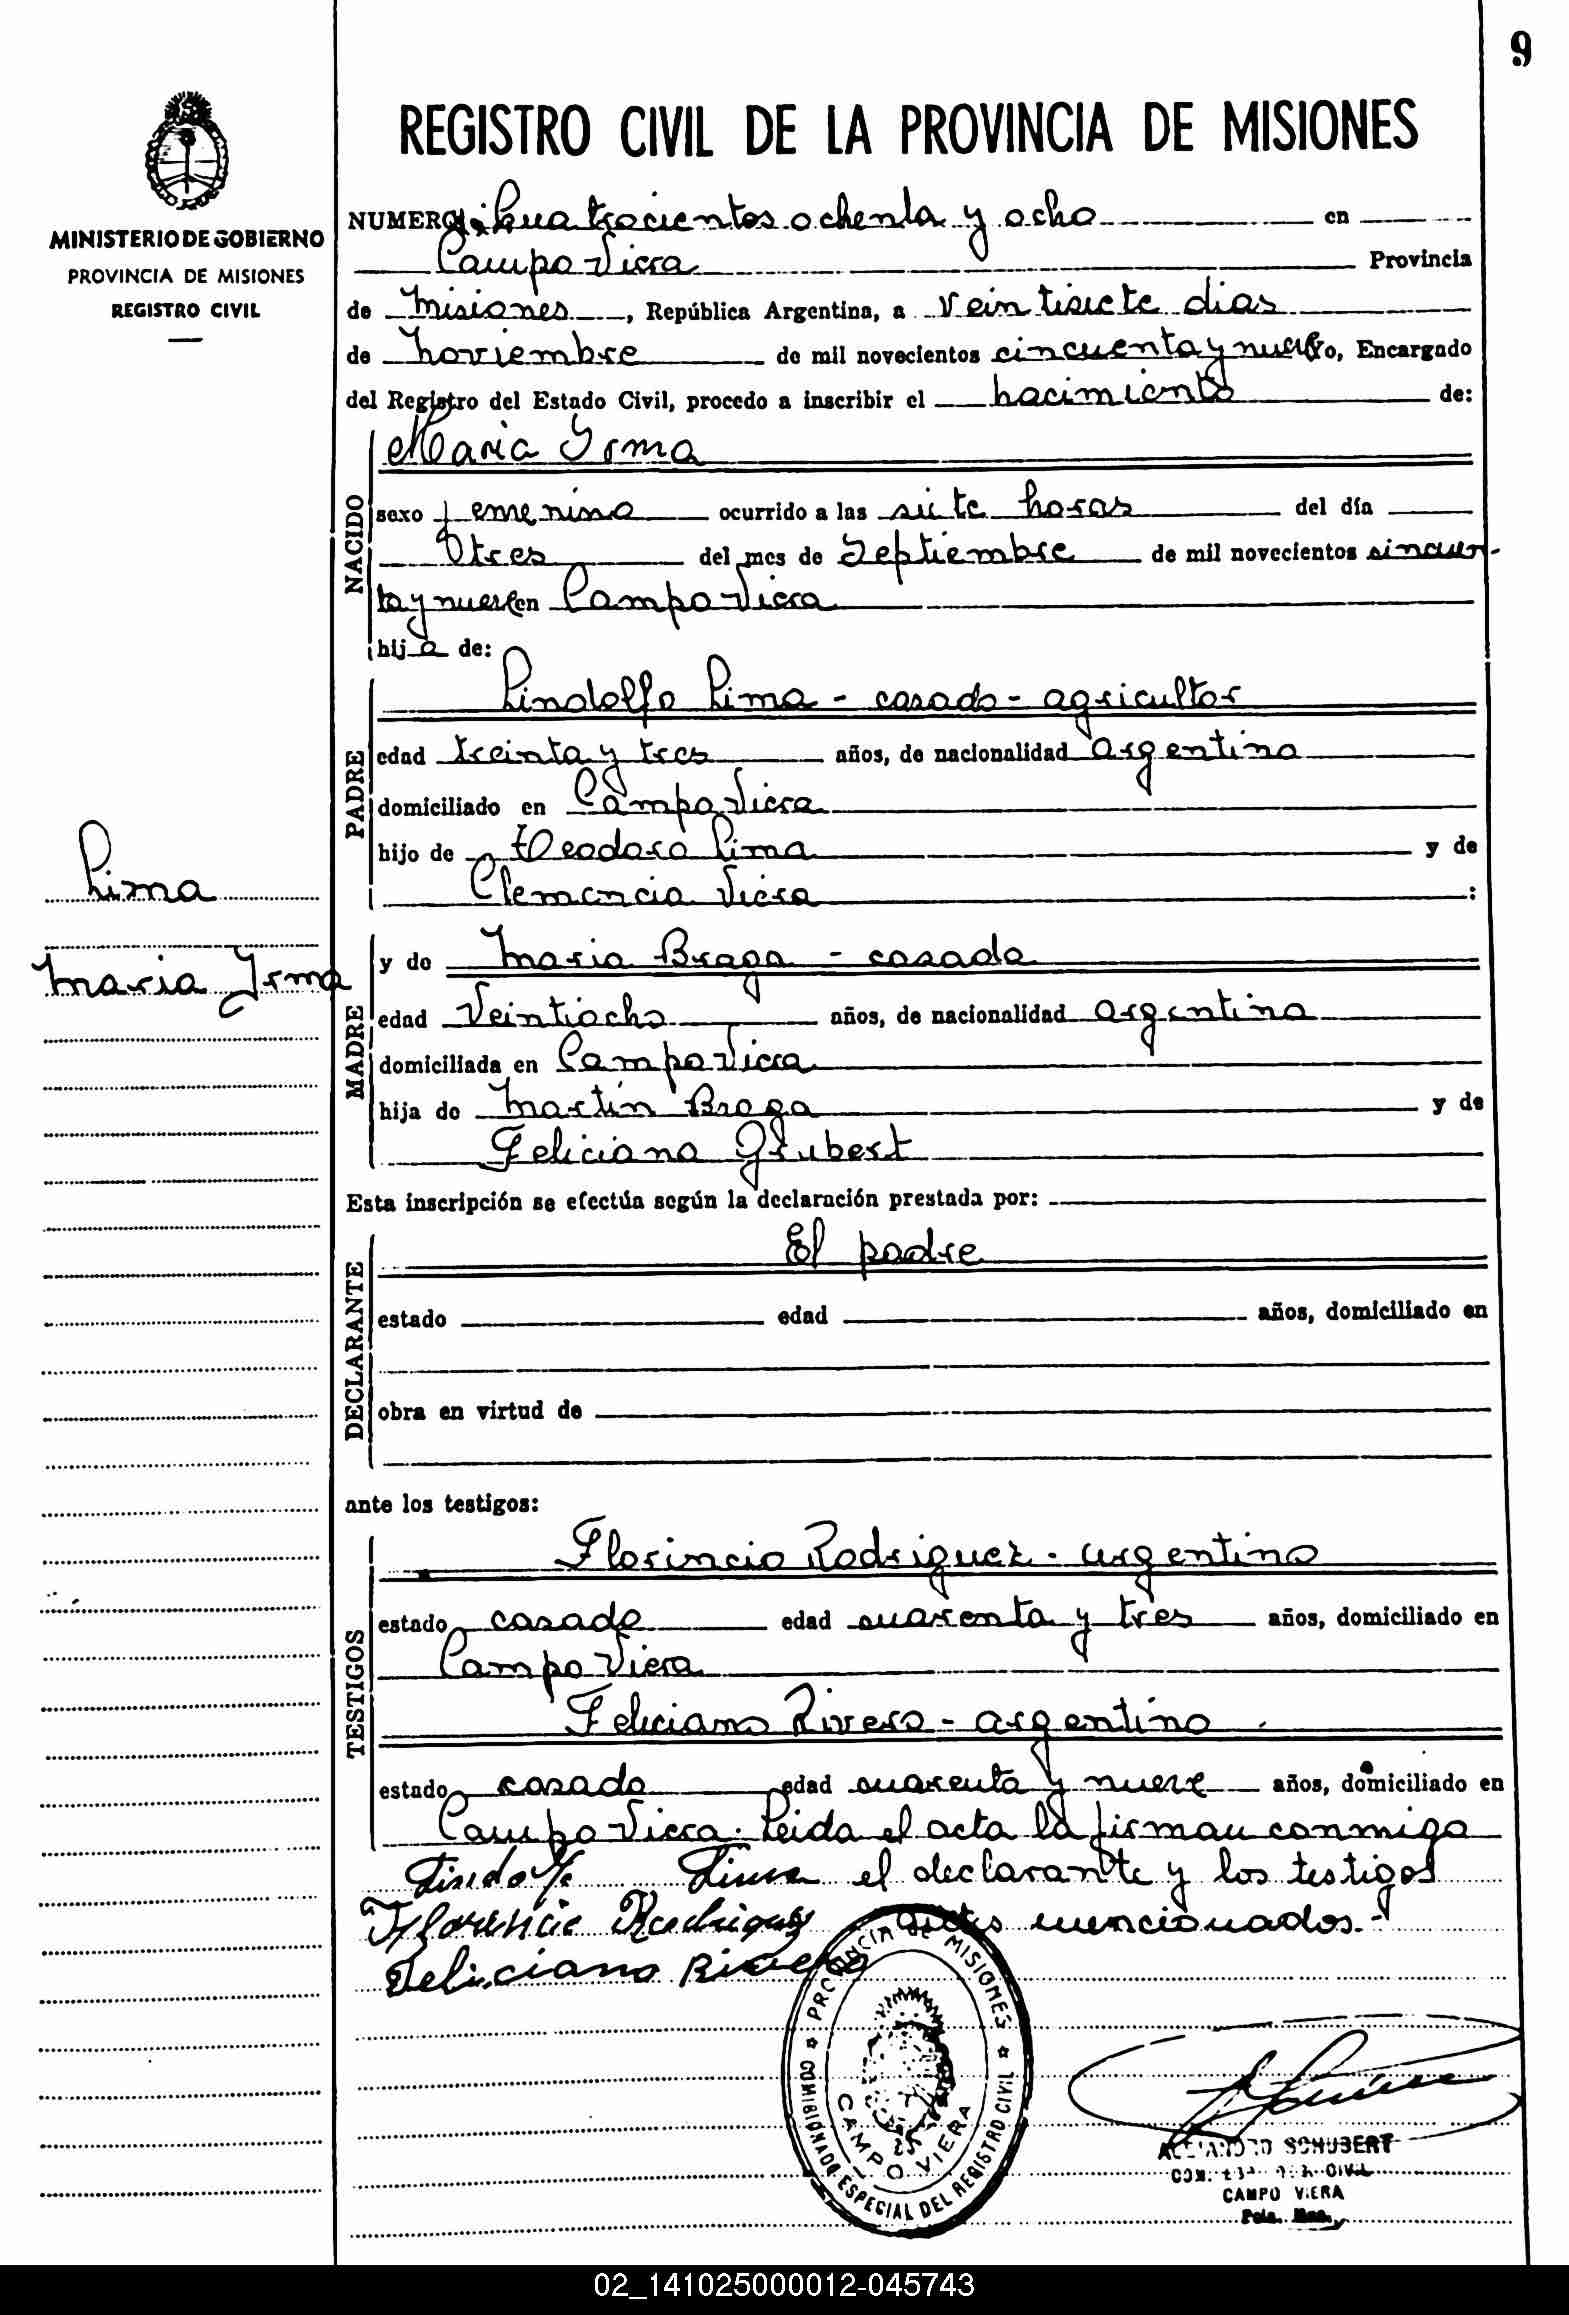 9
REGISTRO CIVIL DE LA PROVINCIA DE MISIONES
MINISTERIO DE GOBIERNO
PROVINCIA DE MISIONES
REGISTRO CIVIL
NUMERO cuatrocientos ochenta y ocho en
Campo Viera Provincia
de Misiones, República Argentina, a veintisiete dias
de noviembre de mil novecientos cincuenta y nueve yo, Encargado
del Registro del Estado Civil, procedo a inscribir el nacimiento de:
NACIDO
Maria Yrma
sexo femenino ocurrido a las siete horas del día
tres del mes de Septiembre de mil novecientos sincuen-
ta y nueve en Campo Viera
hija de:
PADRE
Lindolfo Lima - casado - agricultor
edad treinta y tres años, de nacionalidad argentina
domiciliado en Campo Viera
hijo de Teodoro Lima y de
Clemencia Viera :
Lima
Maria Yrma
MADRE
y de Maria Braga - casada
edad Veintiocho años, de nacionalidad argentina
domiciliada en Campo Viera
hija de Martín Braga y de
Feliciana Grubert
Esta inscripción se efectúa según la declaración prestada por:
DECLARANTE
El padre
estado edad años, domiciliado en
obra en virtud de
ante los testigos:
TESTIGOS
Florincio Rodriguez - argentino
estado casado edad cuarenta y tres años, domiciliado en
Campo Viera
Feliciano Rivero - argentino
estado casado edad cuarenta y nueve años, domiciliado en
Campo Viera. Leida el acta la firman conmigo
Lindolfo Lima el declarante y los testigos
Florencio Rodriguez antes mencionados.-
Feliciano Rivero
PROVINCIA DE MISIONES
COMISIONADO ESPECIAL DEL REGISTRO CIVIL
CAMPO VIERA
ALEJANDRO SCHUBERT
CIVIL
CAMPO VIERA
Pcia. Mnes.
02_141025000012-045743